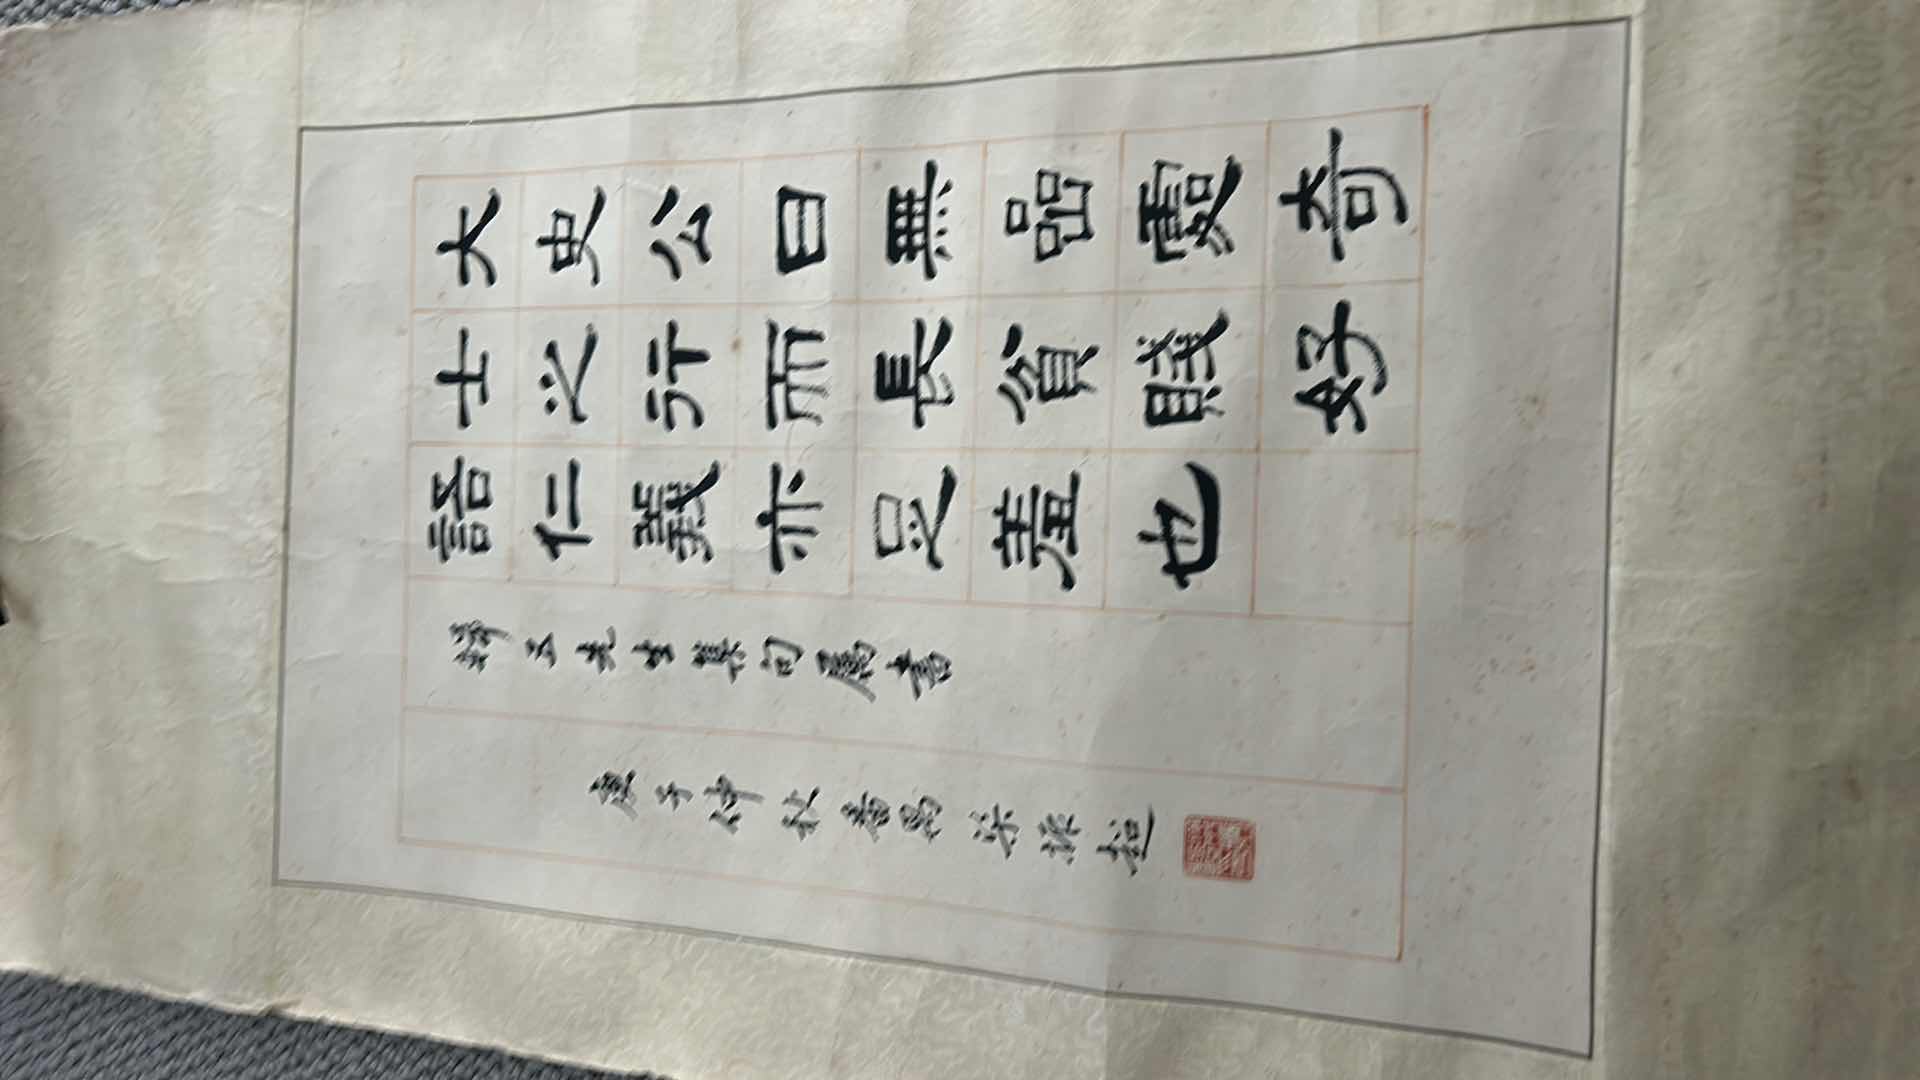 大史公曰無嵒處奇
士之行而長貧賤好
語仁義亦足羞也
五先生集句属書
庚子仲秋番禺梁振超